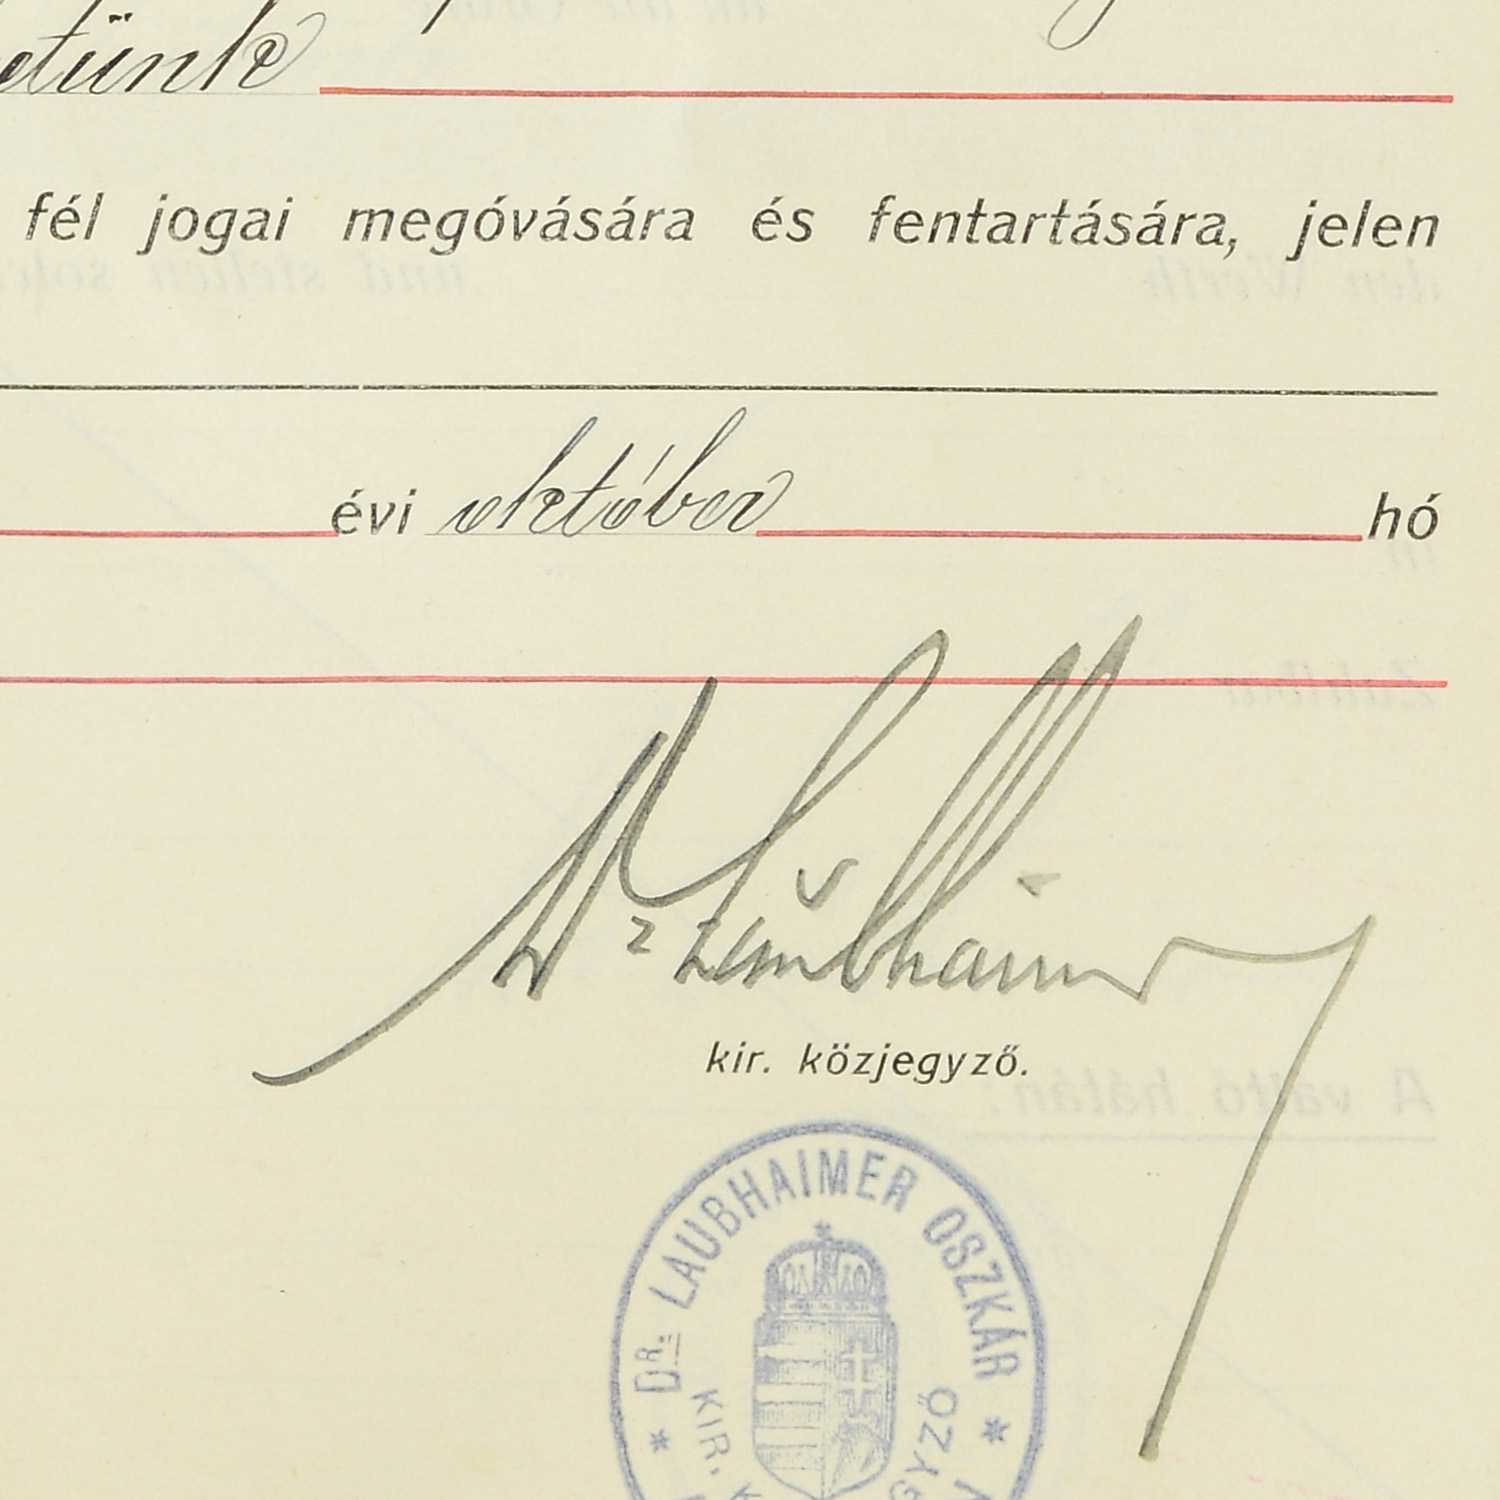 etünk
fél jogai megóvására és fentartására, jelen
évi október hó
Dr Laubhaimer
kir. közjegyző.
* DR. LAUBHAIMER OSZKÁR *
KIR. K GYZŐ
A váltó hátán: